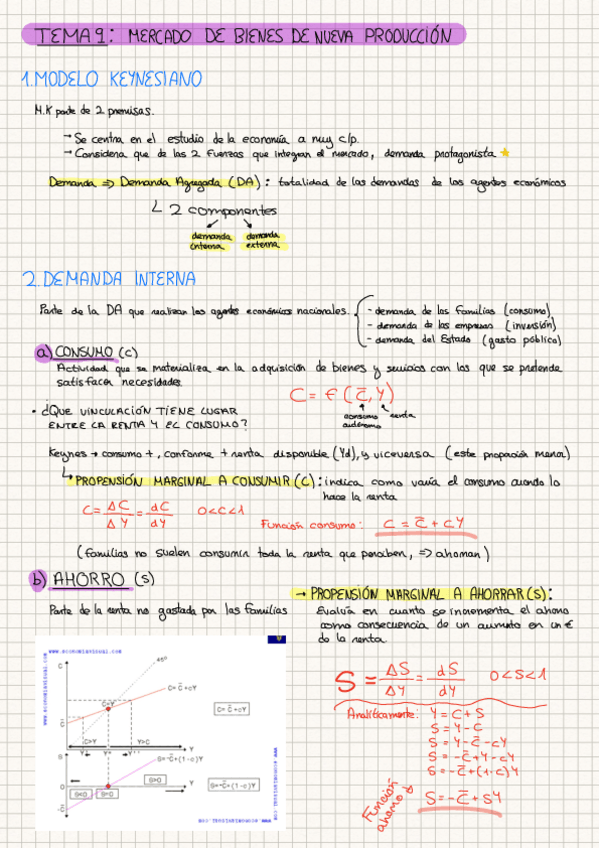 TEMA 9: MERCADO DE BIENES DE NUEVA PRODUCCIÓN
1. MODELO KEYNESIANO
M.K parte de 2 premisas.
→ Se centra en el estudio de la economía a muy c/p.
→ Considera que de las 2 fuerzas que integran el mercado, demanda protagonista
Demanda ⇒ Demanda Agregada (DA): totalidad de las demandas de los agentes económicos
↳ 2 componentes
demanda interna
demanda externa
2. DEMANDA INTERNA
Parte de la DA que realizan los agentes económicos nacionales.
- demanda de las familias (consumo)
- demanda de las empresas (inversión)
- demanda del Estado (gasto público)
a) CONSUMO (C)
Actividad que se materializa en la adquisición de bienes y servicios con los que se pretende
satisfacer necesidades.
C = f (C̄, Y)
consumo autónomo
renta
• ¿QUE VINCULACIÓN TIENE LUGAR
ENTRE LA RENTA Y EL CONSUMO?
Keynes → consumo +, conforme + renta disponible (Yd), y viceversa (este proporción menor)
↳ PROPENSIÓN MARGINAL A CONSUMIR (C): indica como varía el consumo cuando lo
hace la renta
C = ΔC/ΔY = dC/dY 0<c<1
Función consumo: C = C̄ + cY
(familias no suelen consumir toda la renta que perciben, ⇒ ahorran)
b) AHORRO (S)
Parte de la renta no gastada por las familias
→ PROPENSIÓN MARGINAL A AHORRAR (S):
Evalúa en cuanto se incrementa el ahorro
como consecuencia de un aumento en un €
de la renta.
S = ΔS/ΔY = dS/dY 0<S<1
Analíticamente: Y = C + S
S = Y - C
S = Y - C̄ - cY
S = -C̄ + Y - cY
S = -C̄ + (1-c)Y
Función ahorro
S = -C̄ + sY
www.economiavisual.com
www.economiavisual.com
C
45º
C=Y
C= C̄ +cY
C= C̄ +cY
C̄
C>Y
Y>C
Y
S
Y'
Y*
Y''
S=-C̄+(1-c)Y
S>0
0
S<0
S=0
Y
S=-C̄+(1-c)Y
-C̄
www.economiavisual.com
www.economiavisual.com